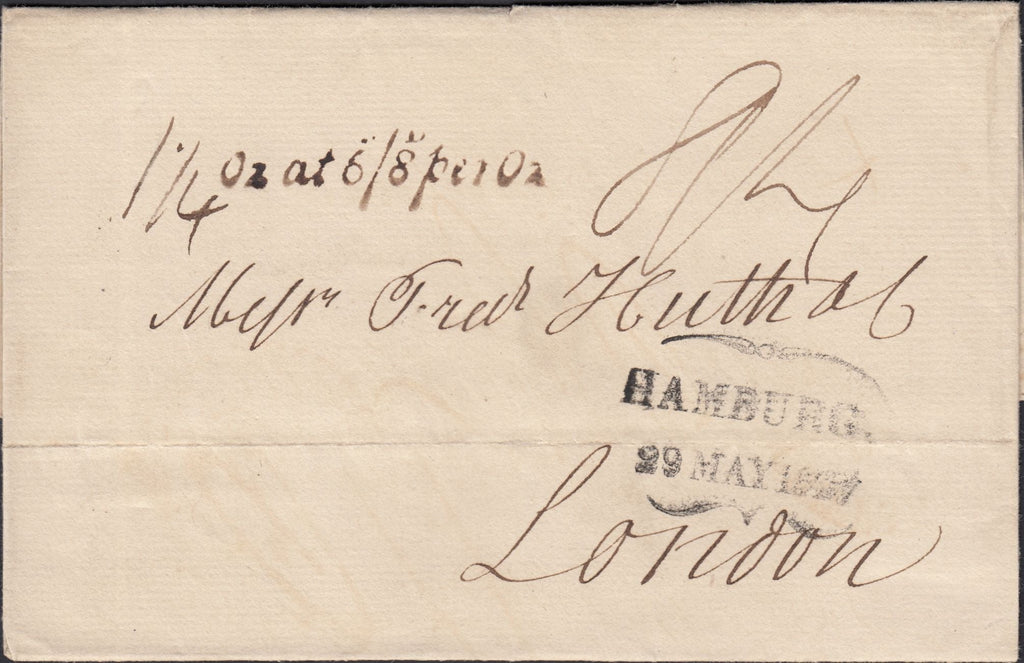 1 1/4 Oz at 6/8 per Oz
8/4
Messrs Fredk Huth & C
HAMBURG.
29 MAY
London